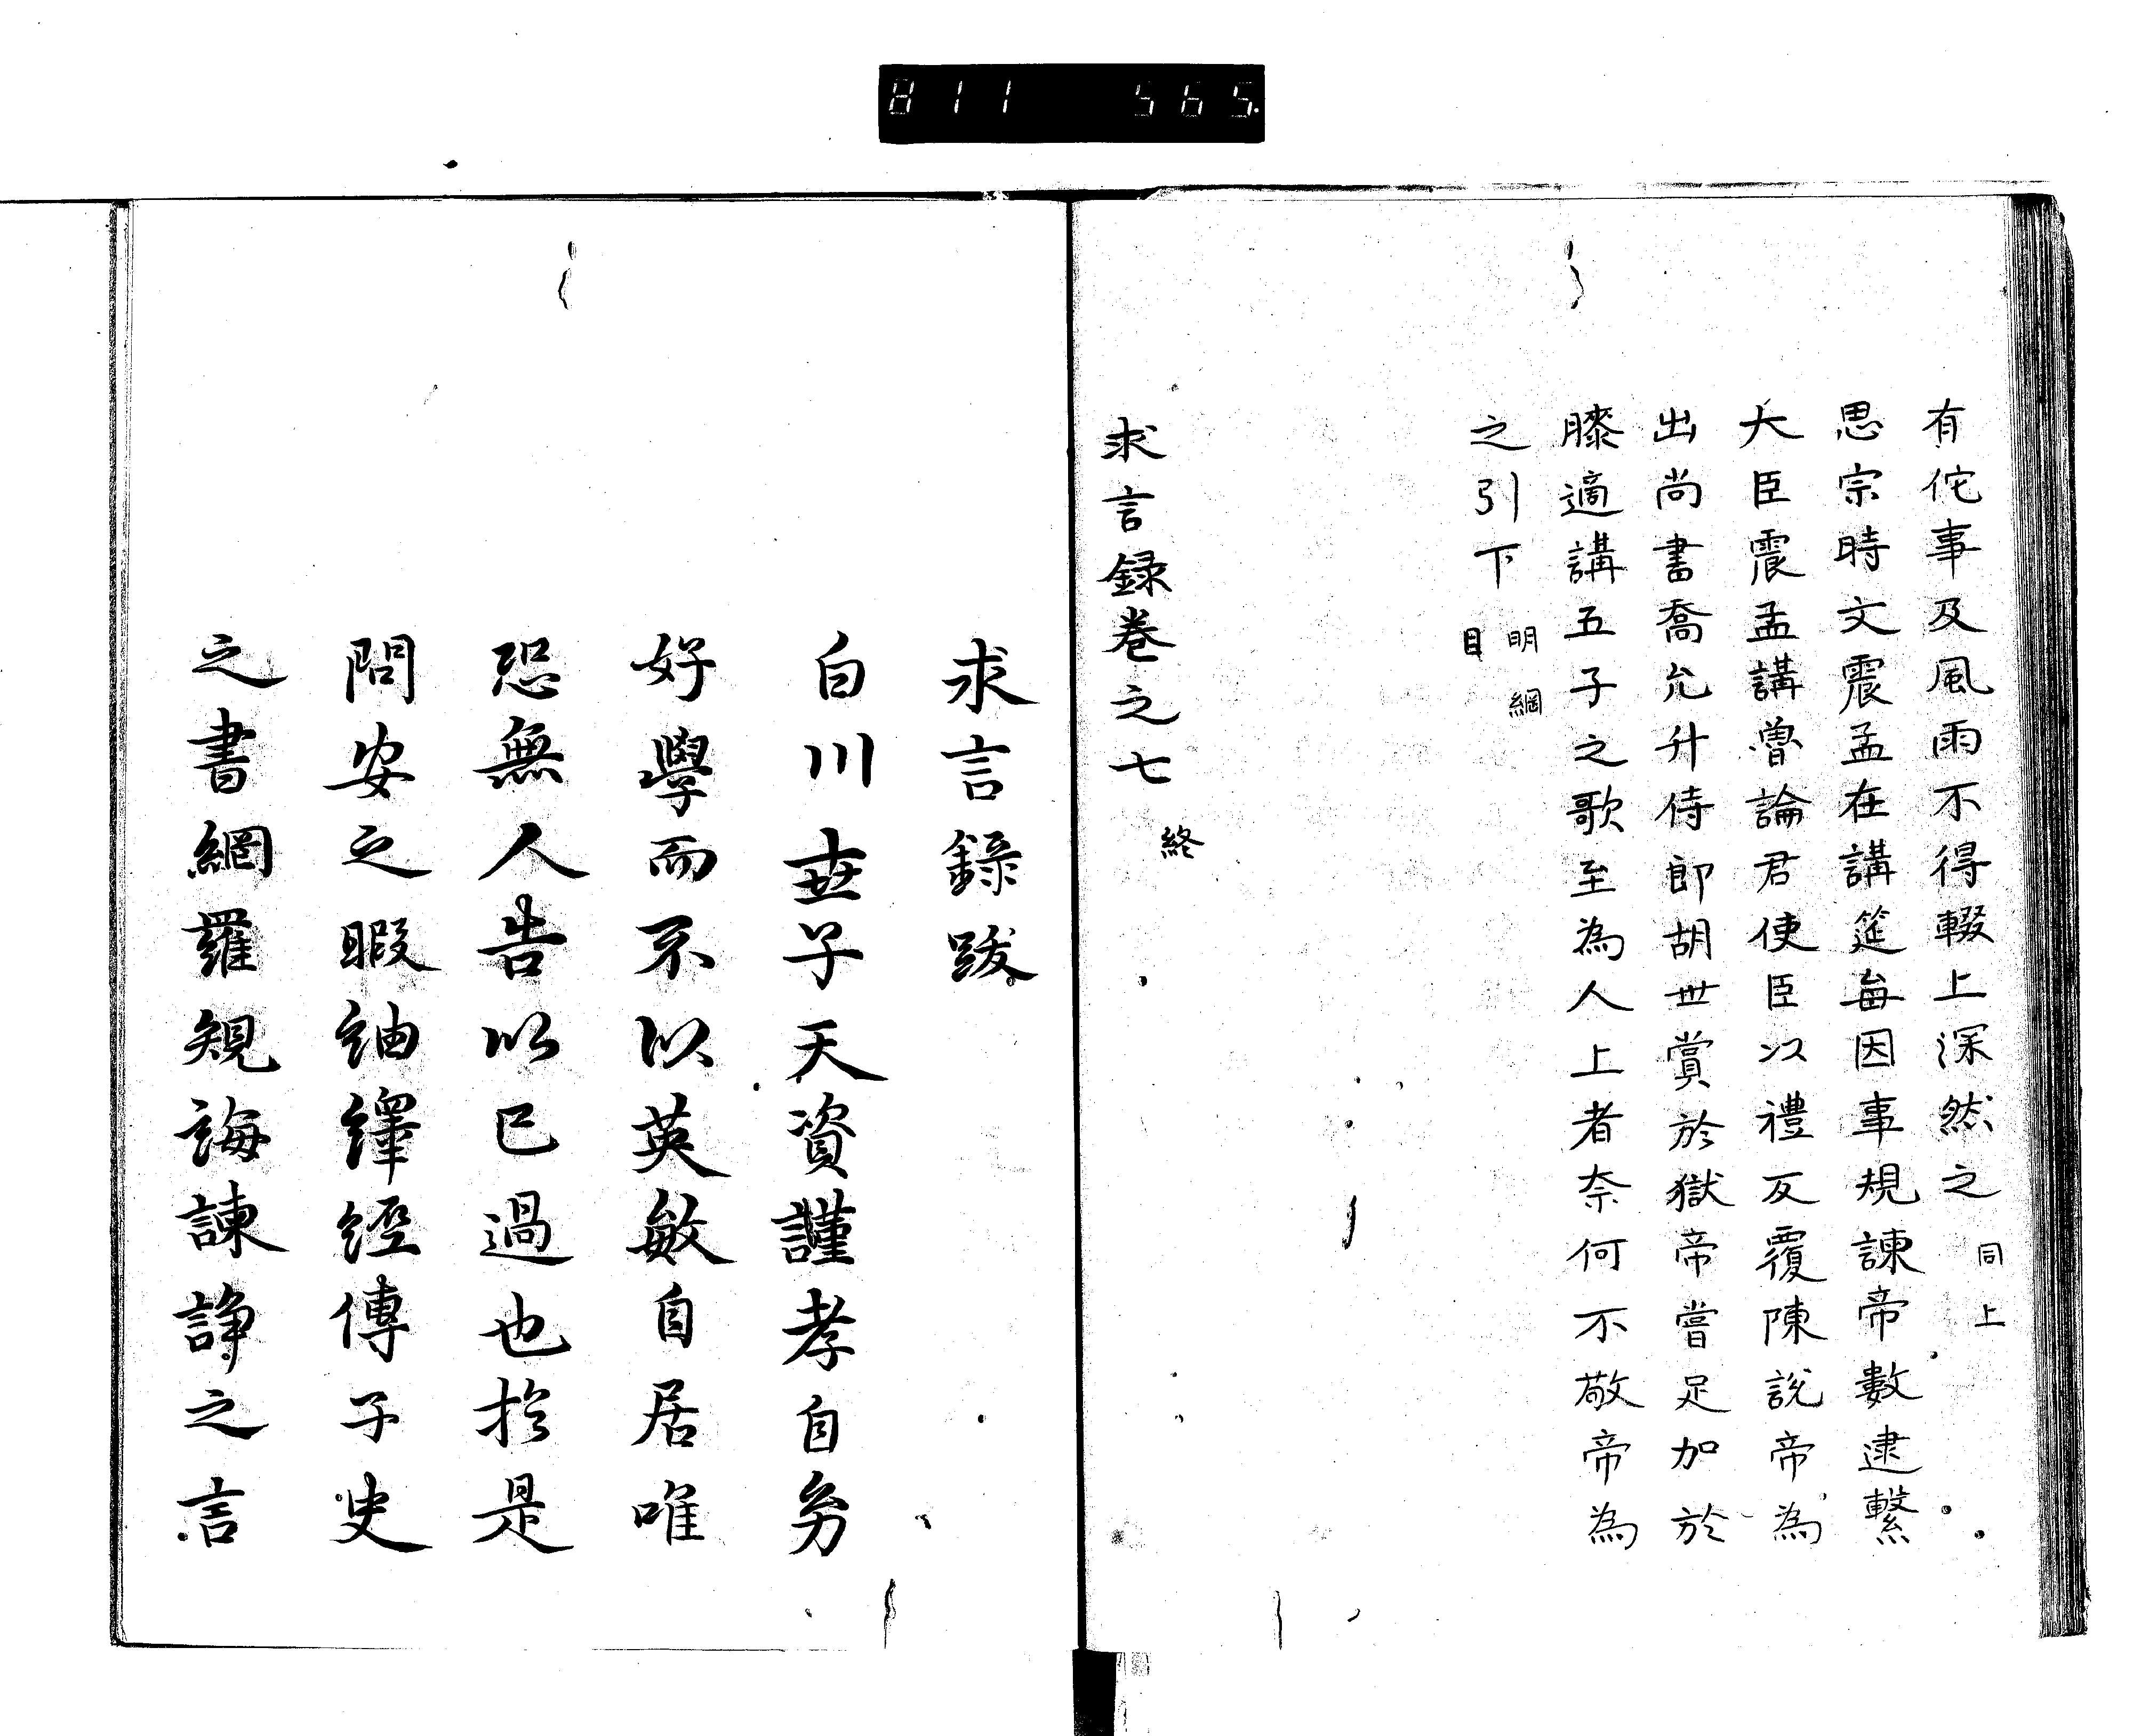 811 565
有佗事及風雨不得輟上深然之同上
思宗時文震孟在講筵每因事規諫帝數逮繫
大臣震孟講魯論君使臣以禮反覆陳說帝為
出尚書喬允升侍郎胡世賞於獄帝嘗足加於
膝適講五子之歌至為人上者奈何不敬帝為
之引下明綱目
求言録卷之七終
求言錄跋
白川世子天資謹孝自勞
好學而不以英敏自居唯
恐無人告以已過也於是
問安之暇紬繹經傳子史
之書網羅規誨諫諍之言